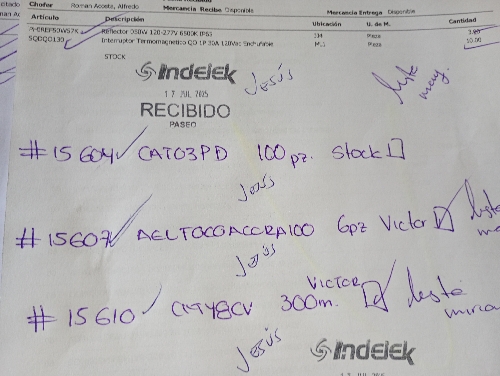 Chofer Roman Acosta, Alfredo Mercancia Recibe Disponible Mercancia Entrega Disponible
Artículo Descripción Ubicación U. de M. Cantidad
Reflector 050W 120-277V 6500K IP65 1M Pieza
SQDQO130 Interruptor Termomagnetico QO 1P 30A 120Vac Enchufable M13 Pieza 10.00
STOCK
Indelek
Jesús
17 JUL 2025
RECIBIDO
PASEO
#15604 CAT03PD 100pz. Stock
Jesús
#15607 6pz Victor Liste
Jesús
#15610 300m. VICTOR Liste
Jesús
Indelek